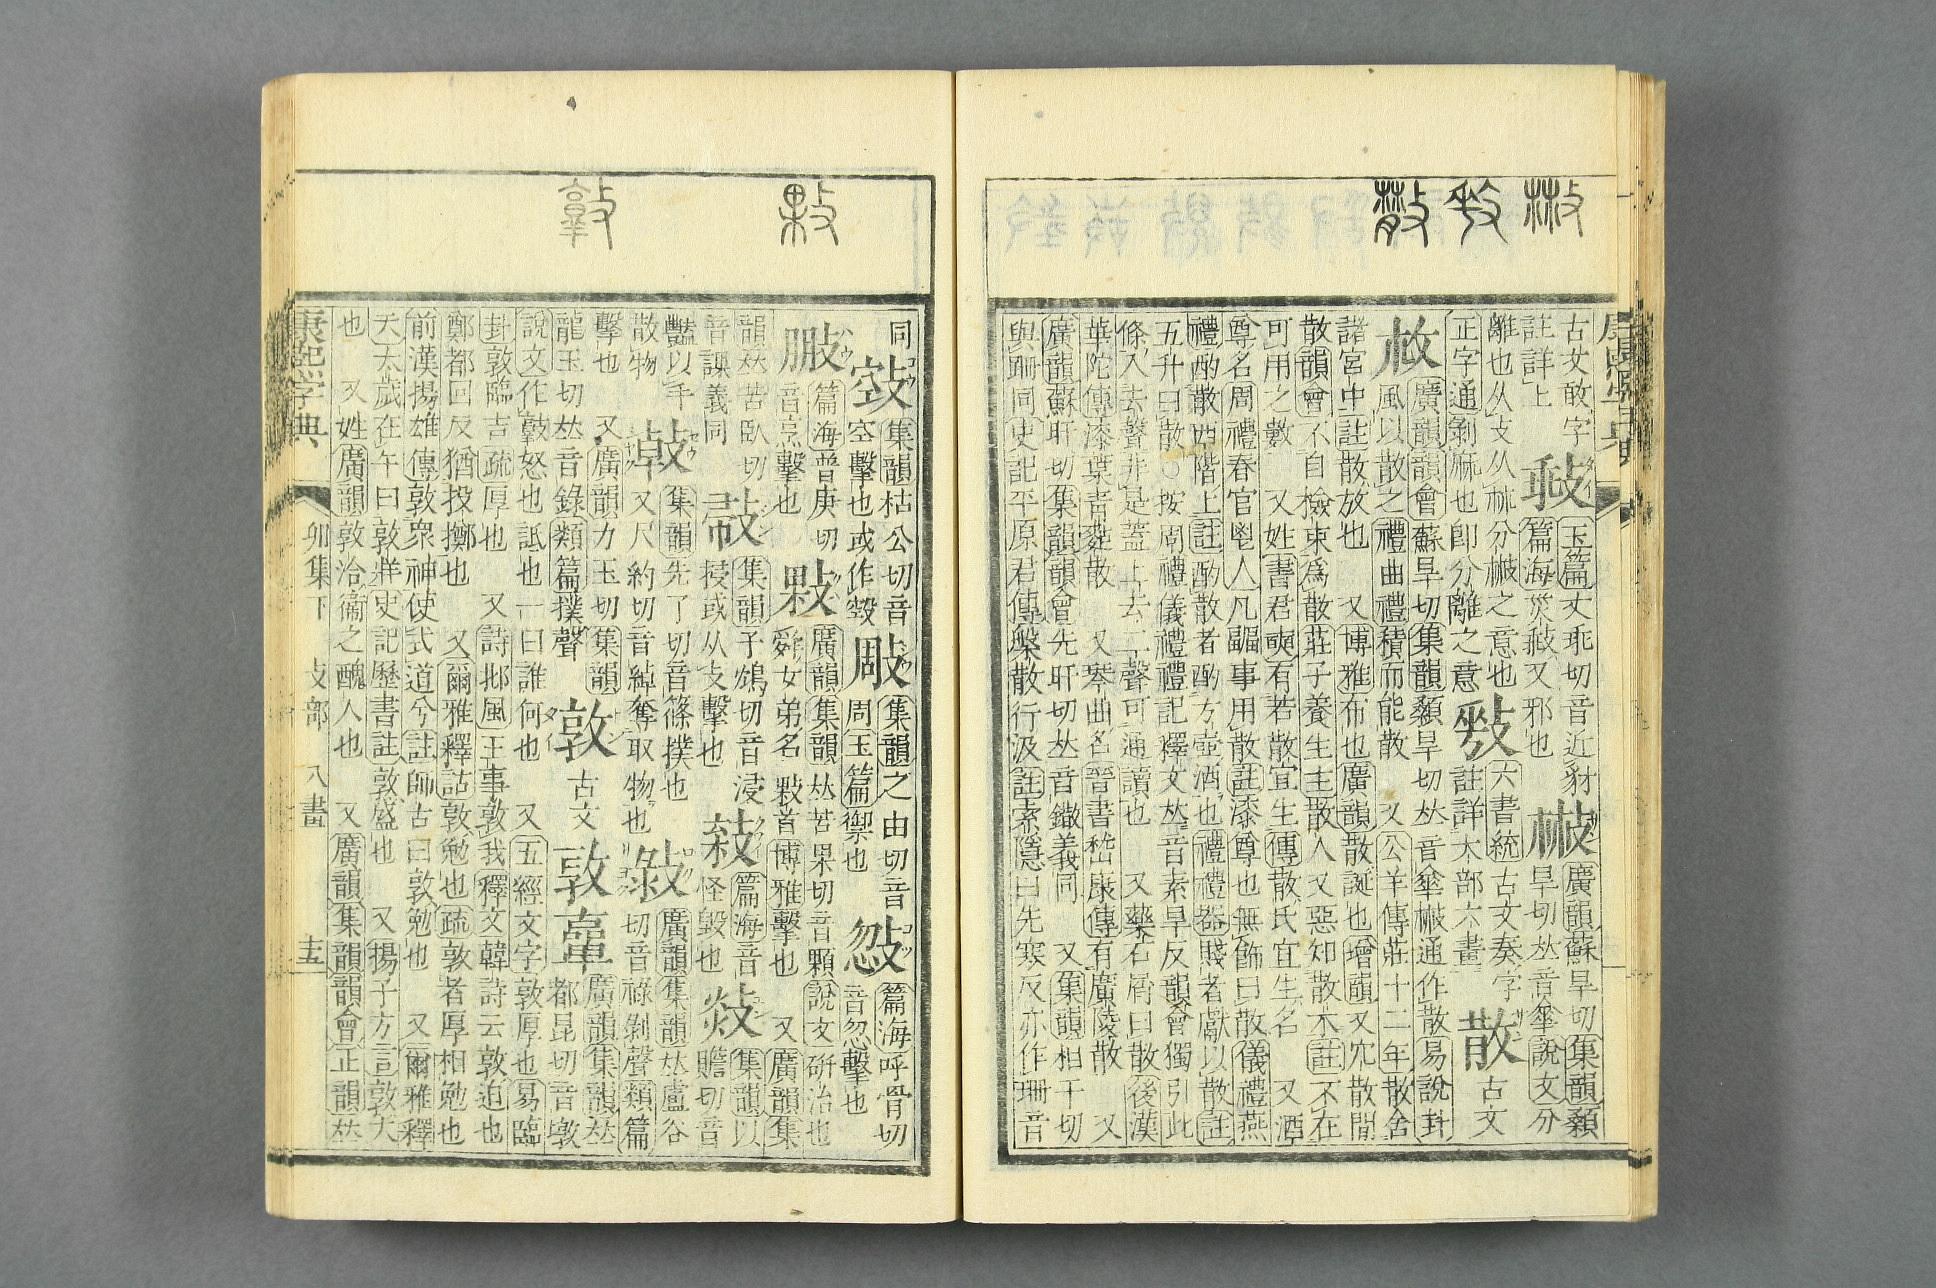 古文敢字 𢻳 玉篇丈乖切音近豺 㪔 廣韻蘇旱切集韻顙
註詳上 篇海災𢻳又邪也 旱切𠀤音傘說文分
離也从攴从𣏟分㪔之意也 六書統古文奏字 散 古文
正字通剝麻也卽分離之意 註詳大部六畫
廣韻韻會蘇旱切集韻顙旱切𠀤音傘㪔通作散易說卦
風以散之禮曲禮積而能散 又公羊傳莊十二年散舍
諸宮中註散放也 又博雅布也廣韻散誕也增韻又宂散閒
散韻會不自檢束爲散莊子養生主散人又惡知散木註不在
可用之數 又姓書君奭有若散宜生傳散氏宜生名 又酒
尊名周禮春官鬯人凡疈事用散註漆尊也無飾曰散儀禮燕
禮酌散西階上註酌散者酌方壺酒也禮禮器賤者獻以散註
五升曰散○按周禮儀禮禮記釋文𠀤音素旱反韻會獨引此
條入去聲非是蓋上去二聲可通讀也 又藥石屑曰散後漢
華陀傳漆葉靑䴴散 又琴曲名晉書嵆康傳有廣陵散 又
廣韻蘇旰切集韻韻會先旰切𠀤音鏾義同 又集韻相干切
與跚同史記平原君傳槃散行汲註索隱曰先寒反亦作珊音
同 㲁 集韻枯公切音 㪕 集韻之由切音 㪃 篇海呼骨切
空擊也或作㲁 周玉篇禦也 音忽擊也
篇海普庚切 敤 廣韻集韻𠀤苦果切音顆說文硏治也
音烹擊也 舜女弟名敤首博雅擊也 又廣韻集
韻𠀤苦臥切 集韻子鴆切音浸 篇海音 集韻以
音課義同 㩒或从攴擊也 怪毀也 贍切音
豔以手 集韻先了切音篠撲也 廣韻集韻𠀤盧谷
散物 又尺約切音綽奪取物也 切音祿剝聲類篇
擊也 又廣韻力玉切集韻 敦 古文 𢽳 廣韻集韻𠀤
龍玉切𠀤音錄類篇撲聲 都昆切音墩
說文作𢾕怒也詆也一曰誰何也 又五經文字敦厚也易臨
卦敦臨吉疏厚也 又詩邶風王事敦我釋文韓詩云敦迫也
鄭都回反猶投擲也 又爾雅釋詁敦勉也疏敦者厚相勉也
前漢揚雄傳敦衆神使式道兮註師古曰敦勉也 又爾雅釋
天太歲在午曰敦牂史記歷書註敦盛也 又揚子方言敦大
也 又姓廣韻敦洽衞之醜人也 又廣韻集韻韻會正韻𠀤
康熙字典 卯集下 攴部 八畫 十五